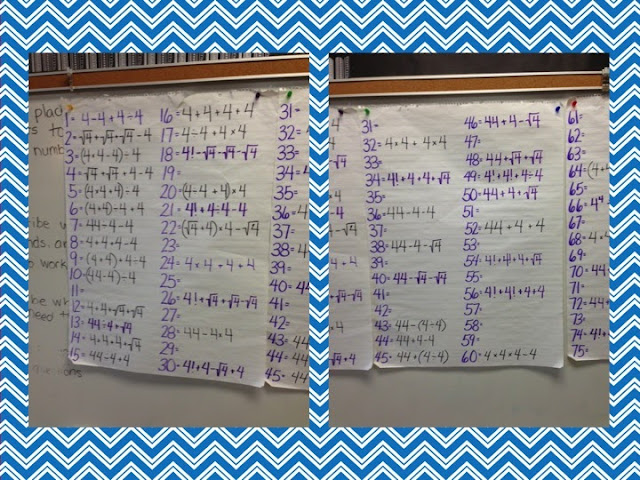 1=4-4+4÷4
2=√4+√4+√4-4
3=(4+4+4)÷4
4=√4+√4+4-4
5=(4×4+4)÷4
6=(4+4)÷4+4
7=44÷4-4
8=4+4+4-4
9=(4÷4)+4+4
10=(44-4)÷4
11=
12=4+4+√4+√4
13=44÷4+√4
14=4+4+4+√4
15=44÷4+4
16=4+4+4+4
17=4÷4+4×4
18=4!-√4-√4-√4
19=
20=(4÷4+4)×4
21=4!+4÷4-4
22=(√4+4)×4-√4
23=
24=4×4+4+4
25=
26=4!+√4+√4-√4
27=
28=44-4×4
29=
30=4!+4-√4+4
31=
32=
33=
34=4
35=
36=4
37=
38=4
39=
40=4
41=
42=
43=44
44=44
45=44
31=
32=4×4+4×4
33=
34=4!+4+4+√4
35=
36=44-4-4
37=
38=44-4-√4
39=
40=44-√4-√4
41=
42=
43=44-(4÷4)
44=44+4-4
45=44+(4÷4)
46=44+4-√4
47=
48=44+√4+√4
49=4!+4!+4÷4
50=44+4+√4
51=
52=44+4+4
53=
54=4!+4!+4+√4
55=
56=4!+4!+4+4
57=
58=
59=
60=4×4×4-4
61=
62=
63=
64=(4+
65=
66=4
67=
68=4+
69=
70=44
71=
72=44
73=
74=4!+
75=